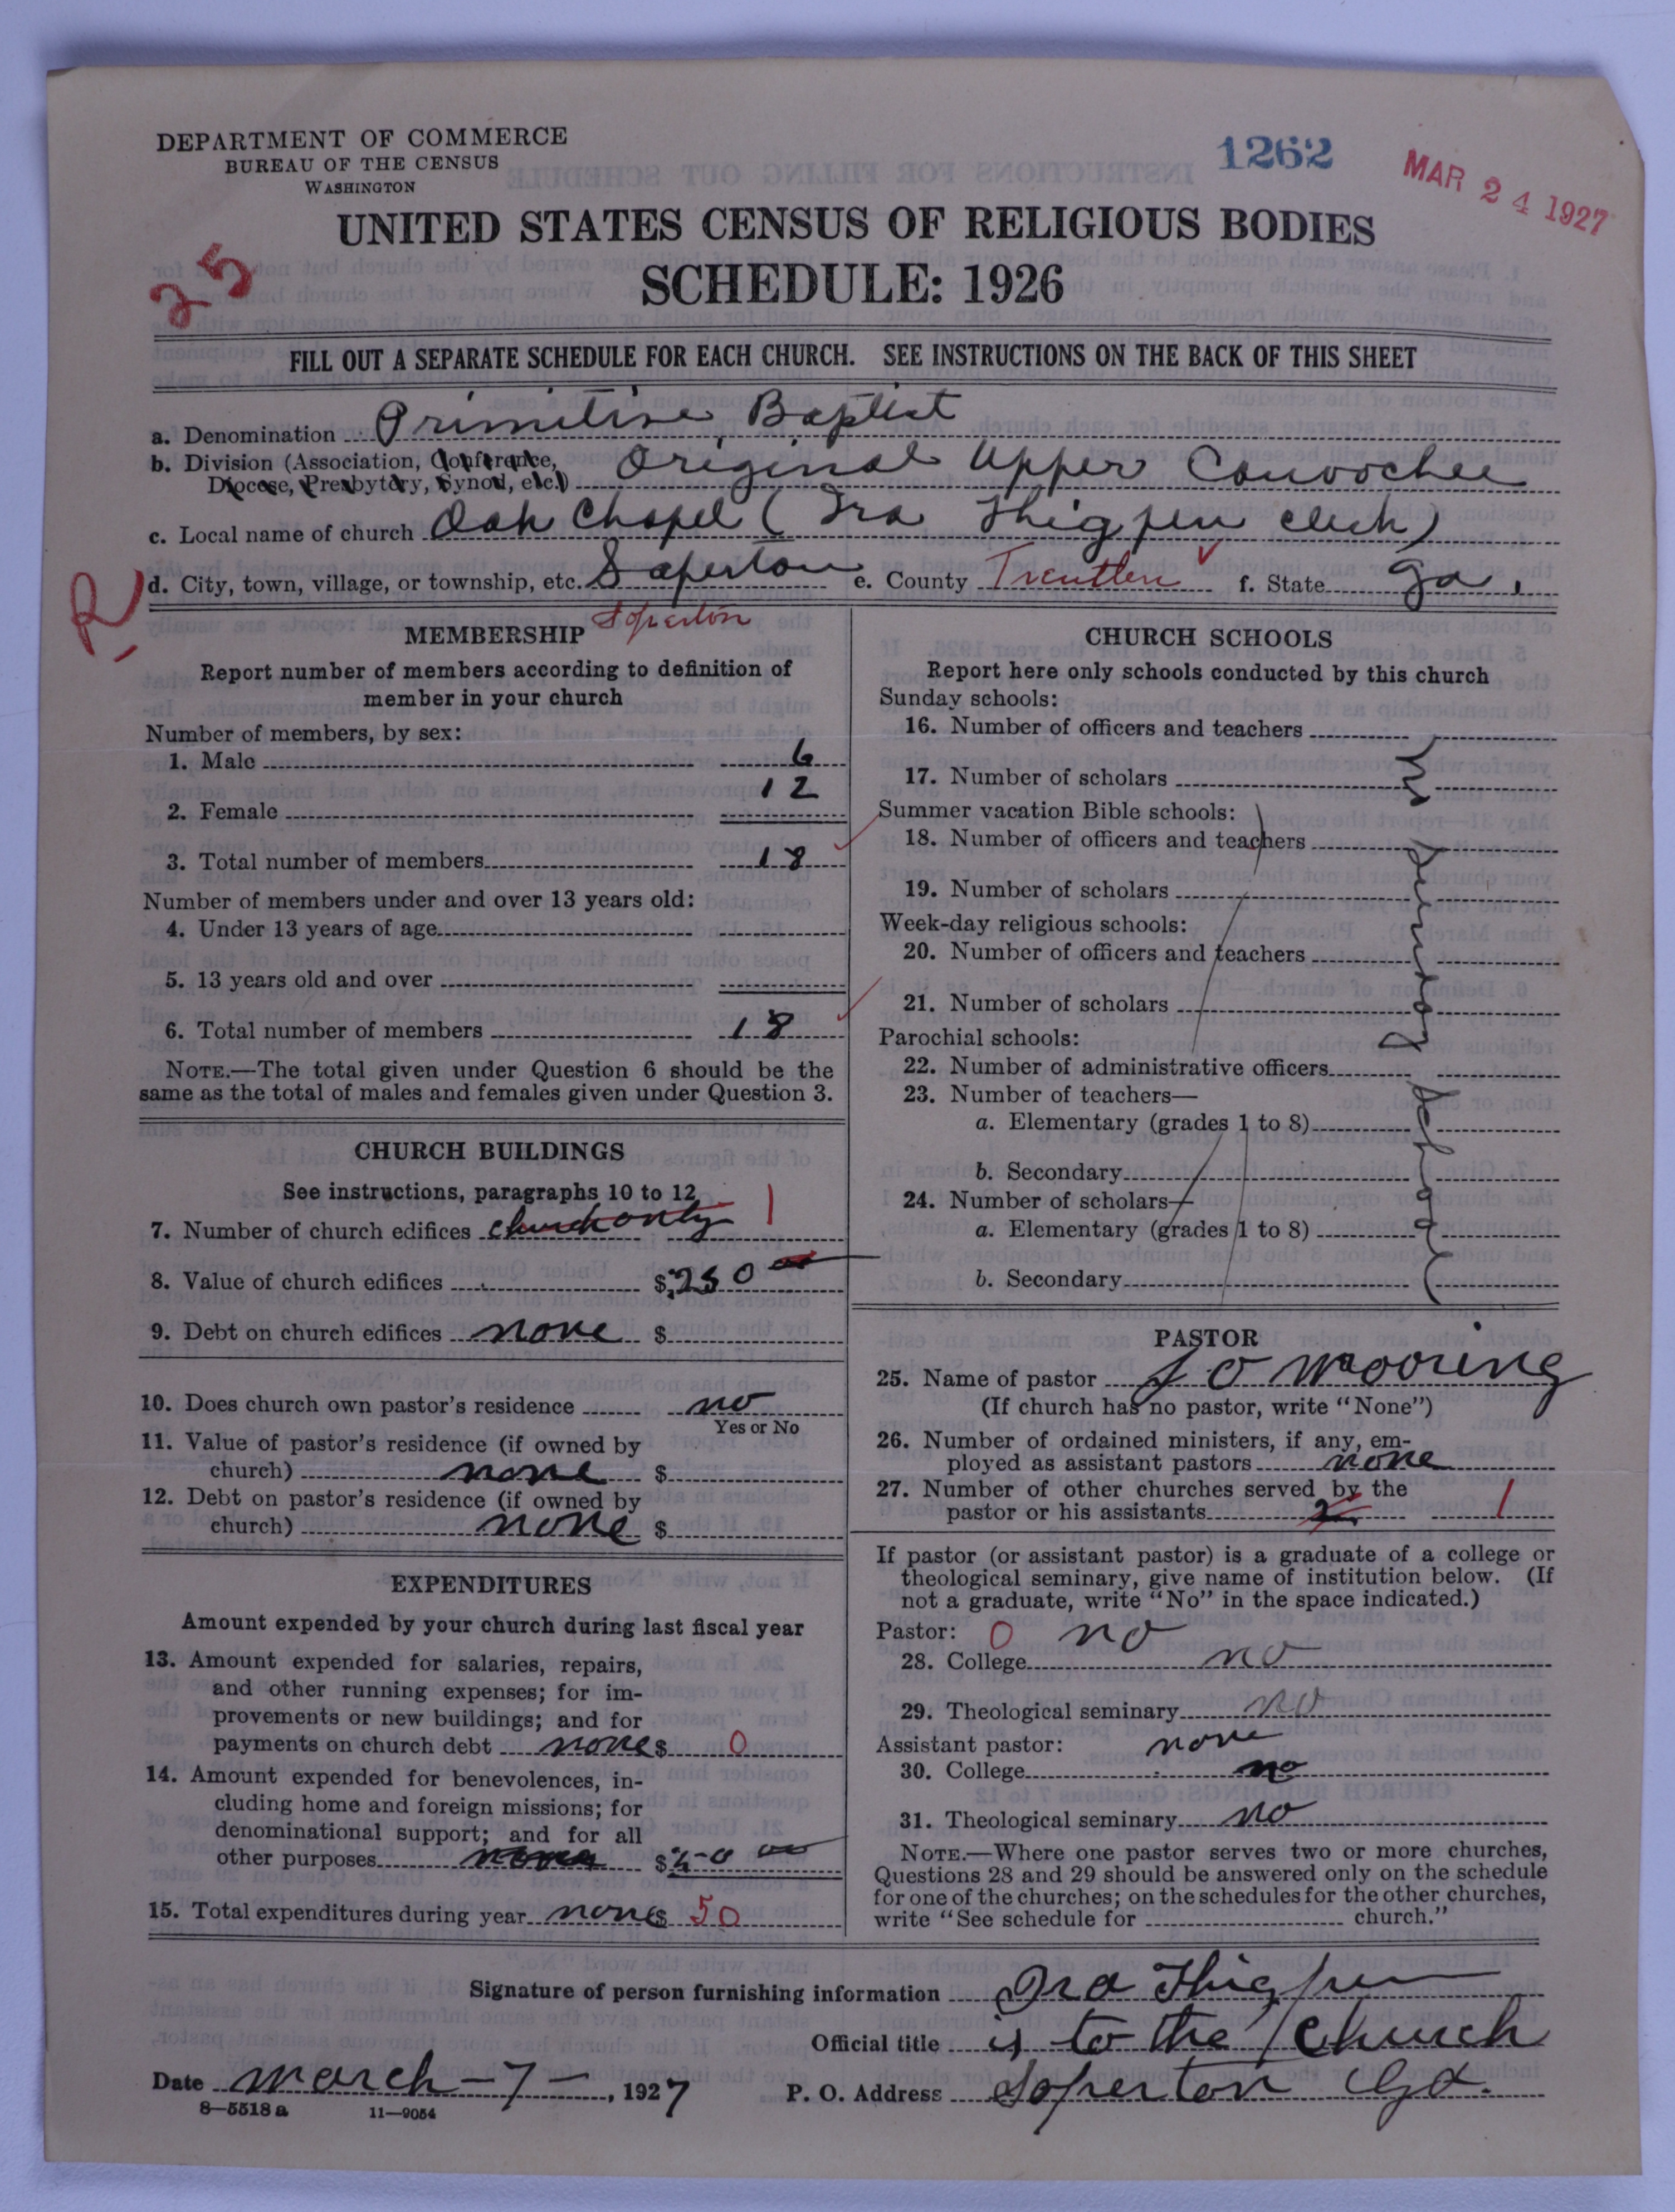 DEPARTMENT OF COMMERCE
BUREAU OF THE CENSUS
WASHINGTON
1262
MAR 24 1927
UNITED STATES CENSUS OF RELIGIOUS BODIES
SCHEDULE: 1926
25
FILL OUT A SEPARATE SCHEDULE FOR EACH CHURCH. SEE INSTRUCTIONS ON THE BACK OF THIS SHEET
a. Denomination Primitive Baptist
b. Division (Association, Conference, Diocese, Presbytery, Synod, etc.) Original Upper Canoochee
c. Local name of church Oak Chapel (Ira Thigpen clerk)
R
d. City, town, village, or township, etc. Soperton e. County Treutlen f. State Ga.
Soperton
MEMBERSHIP
Report number of members according to definition of
member in your church
Number of members, by sex:
1. Male 6
2. Female 12
3. Total number of members 18
Number of members under and over 13 years old:
4. Under 13 years of age
5. 13 years old and over
6. Total number of members 18
NOTE.—The total given under Question 6 should be the
same as the total of males and females given under Question 3.
CHURCH BUILDINGS
See instructions, paragraphs 10 to 12
7. Number of church edifices church only 1
8. Value of church edifices $250 00
9. Debt on church edifices none $
10. Does church own pastor's residence no
Yes or No
11. Value of pastor's residence (if owned by
church) none $
12. Debt on pastor's residence (if owned by
church) none $
EXPENDITURES
Amount expended by your church during last fiscal year
13. Amount expended for salaries, repairs,
and other running expenses; for im-
provements or new buildings; and for
payments on church debt none $ 0
14. Amount expended for benevolences, in-
cluding home and foreign missions; for
denominational support; and for all
other purposes none $50 00
15. Total expenditures during year none $ 50
CHURCH SCHOOLS
Report here only schools conducted by this church
Sunday schools:
16. Number of officers and teachers
17. Number of scholars
Summer vacation Bible schools:
18. Number of officers and teachers
19. Number of scholars
Week-day religious schools:
20. Number of officers and teachers
21. Number of scholars
Parochial schools:
22. Number of administrative officers
23. Number of teachers—
a. Elementary (grades 1 to 8)
b. Secondary
24. Number of scholars—
a. Elementary (grades 1 to 8)
b. Secondary
PASTOR
25. Name of pastor J O Mooring
(If church has no pastor, write "None")
26. Number of ordained ministers, if any, em-
ployed as assistant pastors none
27. Number of other churches served by the
pastor or his assistants 2 1
If pastor (or assistant pastor) is a graduate of a college or
theological seminary, give name of institution below. (If
not a graduate, write "No" in the space indicated.)
Pastor: 0 no
28. College no
29. Theological seminary no
Assistant pastor: none
30. College no
31. Theological seminary no
NOTE.—Where one pastor serves two or more churches,
Questions 28 and 29 should be answered only on the schedule
for one of the churches; on the schedules for the other churches,
write "See schedule for church."
Signature of person furnishing information Ira Thigpen
Official title is to the Church
Date march-7-, 1927 P. O. Address Soperton Ga.
8—5518 a 11—9054